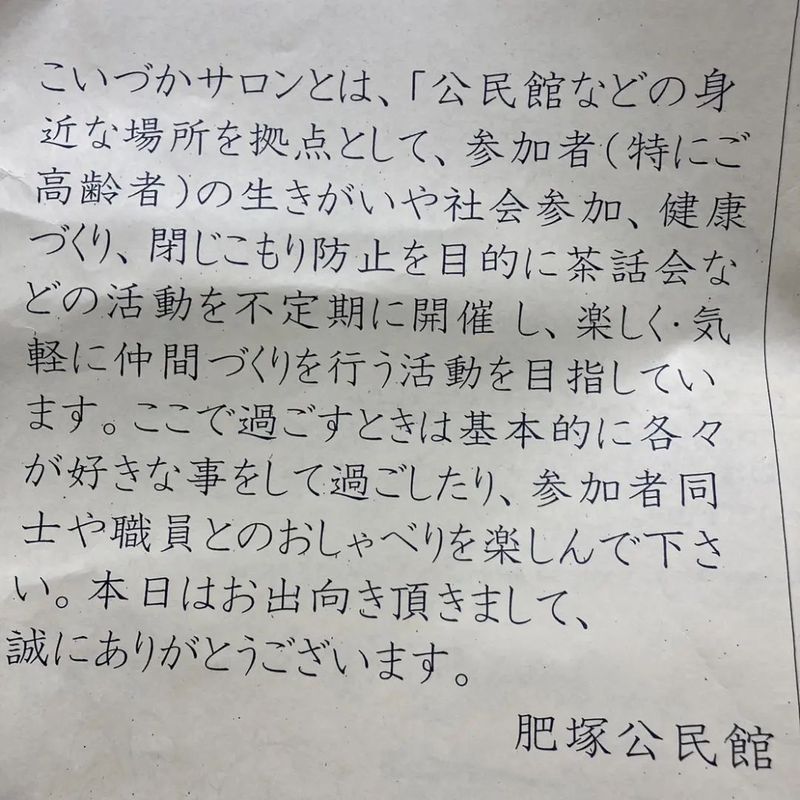 こいづかサロンとは、「公民館などの身
近な場所を拠点として、参加者(特にご
高齢者)の生きがいや社会参加、健康
づくり、閉じこもり防止を目的に茶話会な
どの活動を不定期に開催し、楽しく・気
軽に仲間づくりを行う活動を目指してい
ます。ここで過ごすときは基本的に各々
が好きな事をして過ごしたり、参加者同
士や職員とのおしゃべりを楽しんで下さ
い。本日はお出向き頂きまして、
誠にありがとうございます。
肥塚公民館